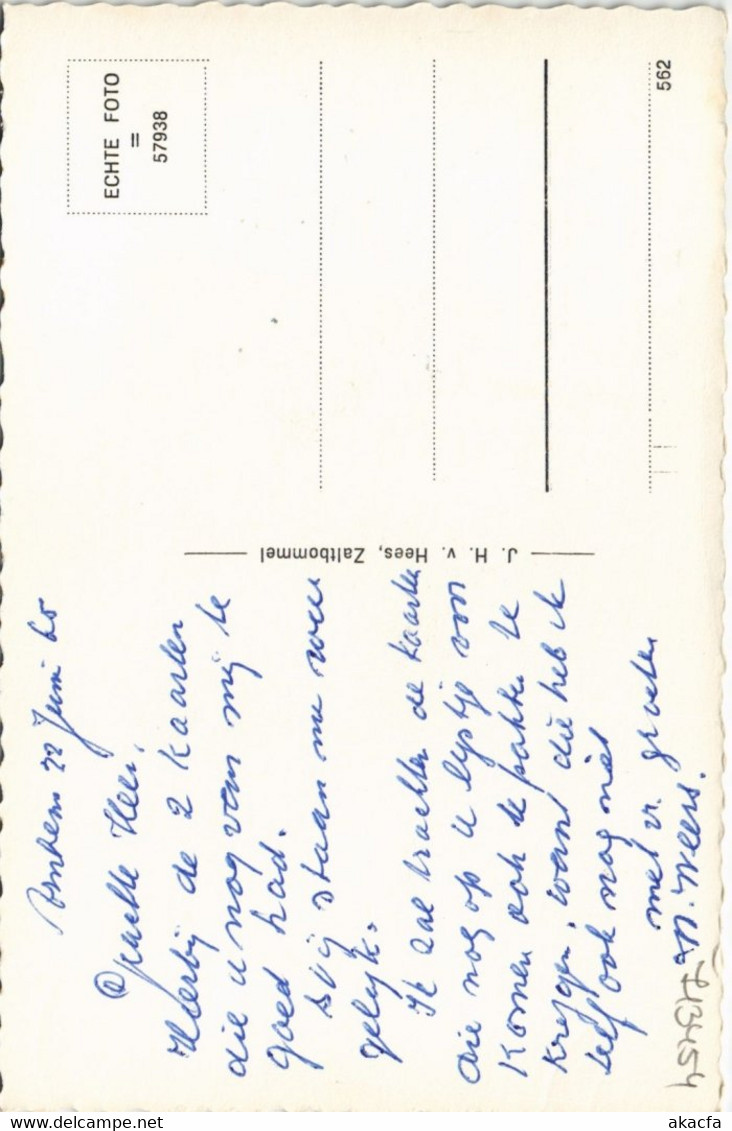 Arnhem 22 Juni 60
Geachte Heer.
Hierbij de 2 kaarten
die u nog van mij te
goed had.
Wij staan nu weer
gelijk.
Ik zal trachten de kaarten
die nog op u lijstje voor
komen ook te pakken te
krijgen, want die heb ik
zelf ook nog niet
met vr groeten
W. Weers.
713454
J. H. v. Hees, Zaltbommel
ECHTE FOTO
=
57938
562
akacfa
delcampe.net